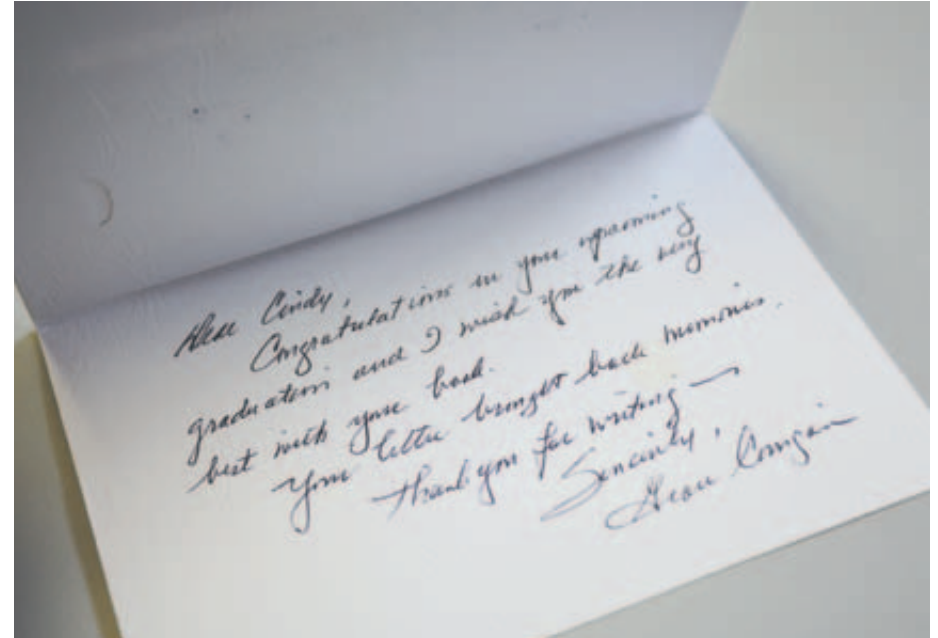 Dear Cindy,
Congratulations on your upcoming
graduation and I wish you the very
best with your book.
Your letter brought back memories.
Thank you for writing —
Sincerely,